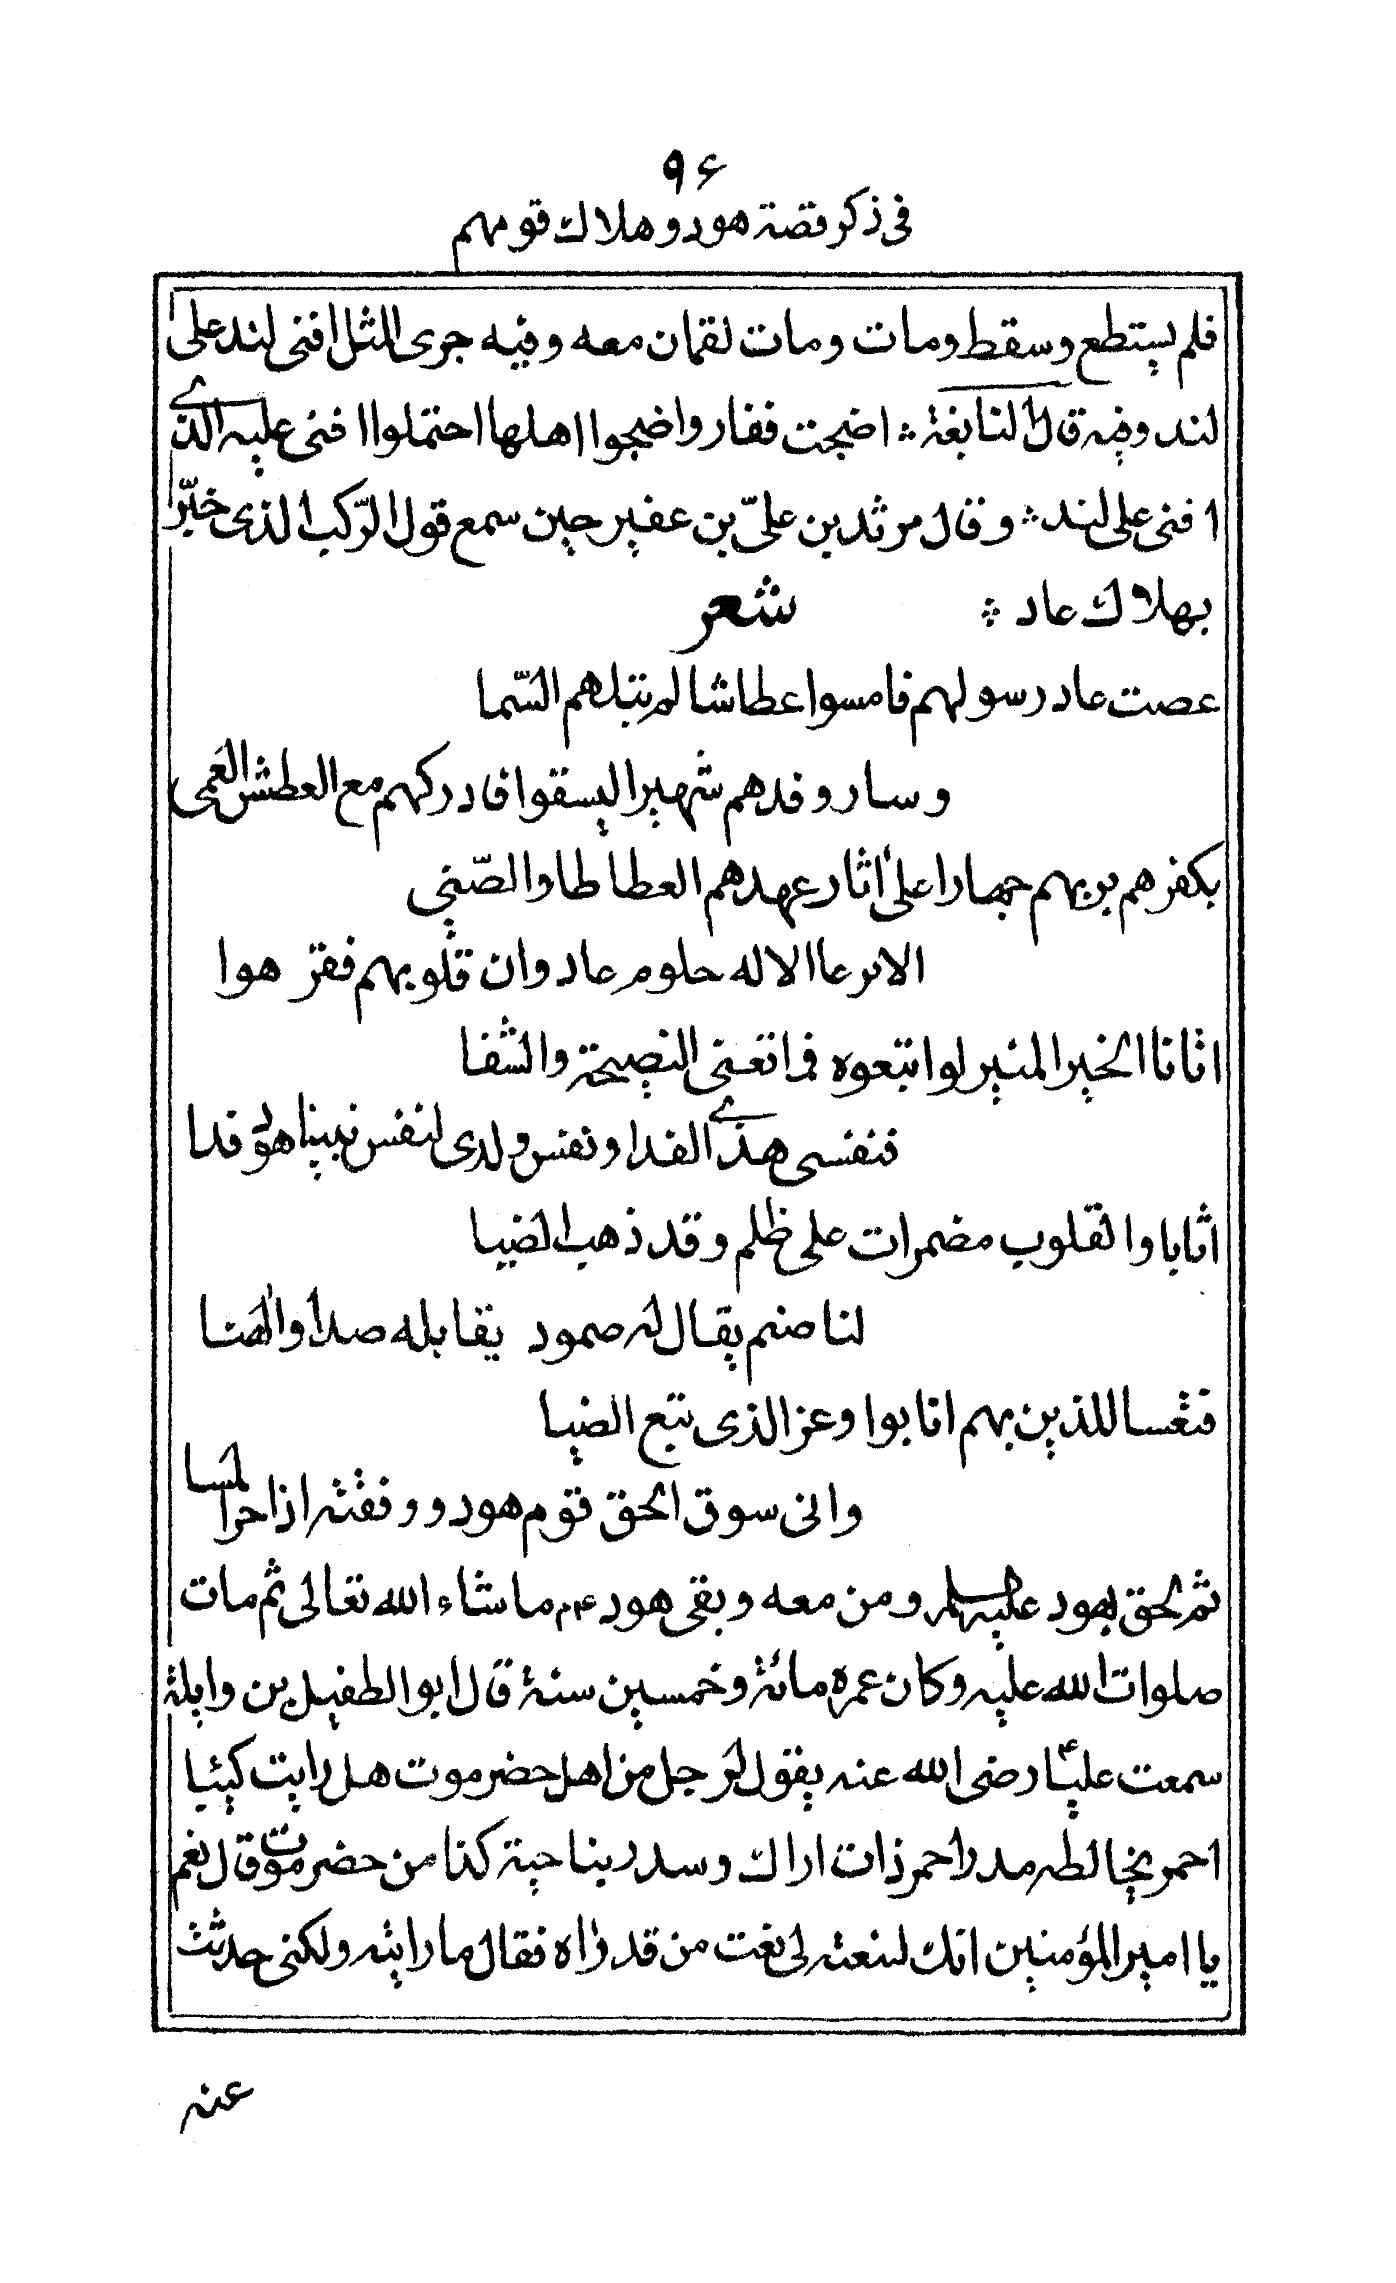 ۹۶
فی ذکر قصة هود وهلاك قومهم
فلم یستطع وسقط ومات ومات لقمان معه وفیه جری المثل افنی لند علی
لند وفیه قال النابغة ؞ اضحت قفار واضحوا اهلها احتملوا افنی علیه الذی
افنی علی لند ؞ وقال مرثد بن علیّ بن عفیر حین سمع قول الرّکب الذی خبّر
بهلاك عاد ؞ شعر
عصت عاد رسولهم فامسوا عطاشا لم تبلهم السّما
وسار وفدهم شهیرا لیسقوا فادرکهم مع العطش العمی
بکفرهم بربهم جهارا علی اثار عهدهم العطاطا والصّنی
الا نزع الاله حلوم عاد وان قلوبهم فقر هوا
اتانا الخیر المنیر لو اتبعوه فما تغنی النصیحة والشفا
فنفسی هذی الفدا ونفس ولدی لنفس نبینا هود فدا
اتانا والقلوب مضمرات علی ظلم وقد ذهب الضیا
لنا صنم یقال له صمود یقابله صدا والهنا
فتعسا للذین بهم انابوا وعز الذی تبع الضیا
وانی سوق الحق قوم هود ووفقته اذا حر المسا
ثم لحق بهود علیه السلم ومن معه وبقی هود ۴م ماشاء الله تعالی ثم مات
صلوات الله علیه وکان عمره مائة وخمسین سنة قال ابو الطفیل بن وایلة
سمعت علیّا رضی الله عنه یقول لرجل من اهل حضرموت هل رایت کیثیا
احمر یخالطه مدرا احمر ذات اراك وسدر بناحیة کذا من حضرموت قال نعم
یا امیر المؤمنین انك لتنعته لی نعت من قد رٰاه فقال ما رایته ولکنی حدثت
عنه